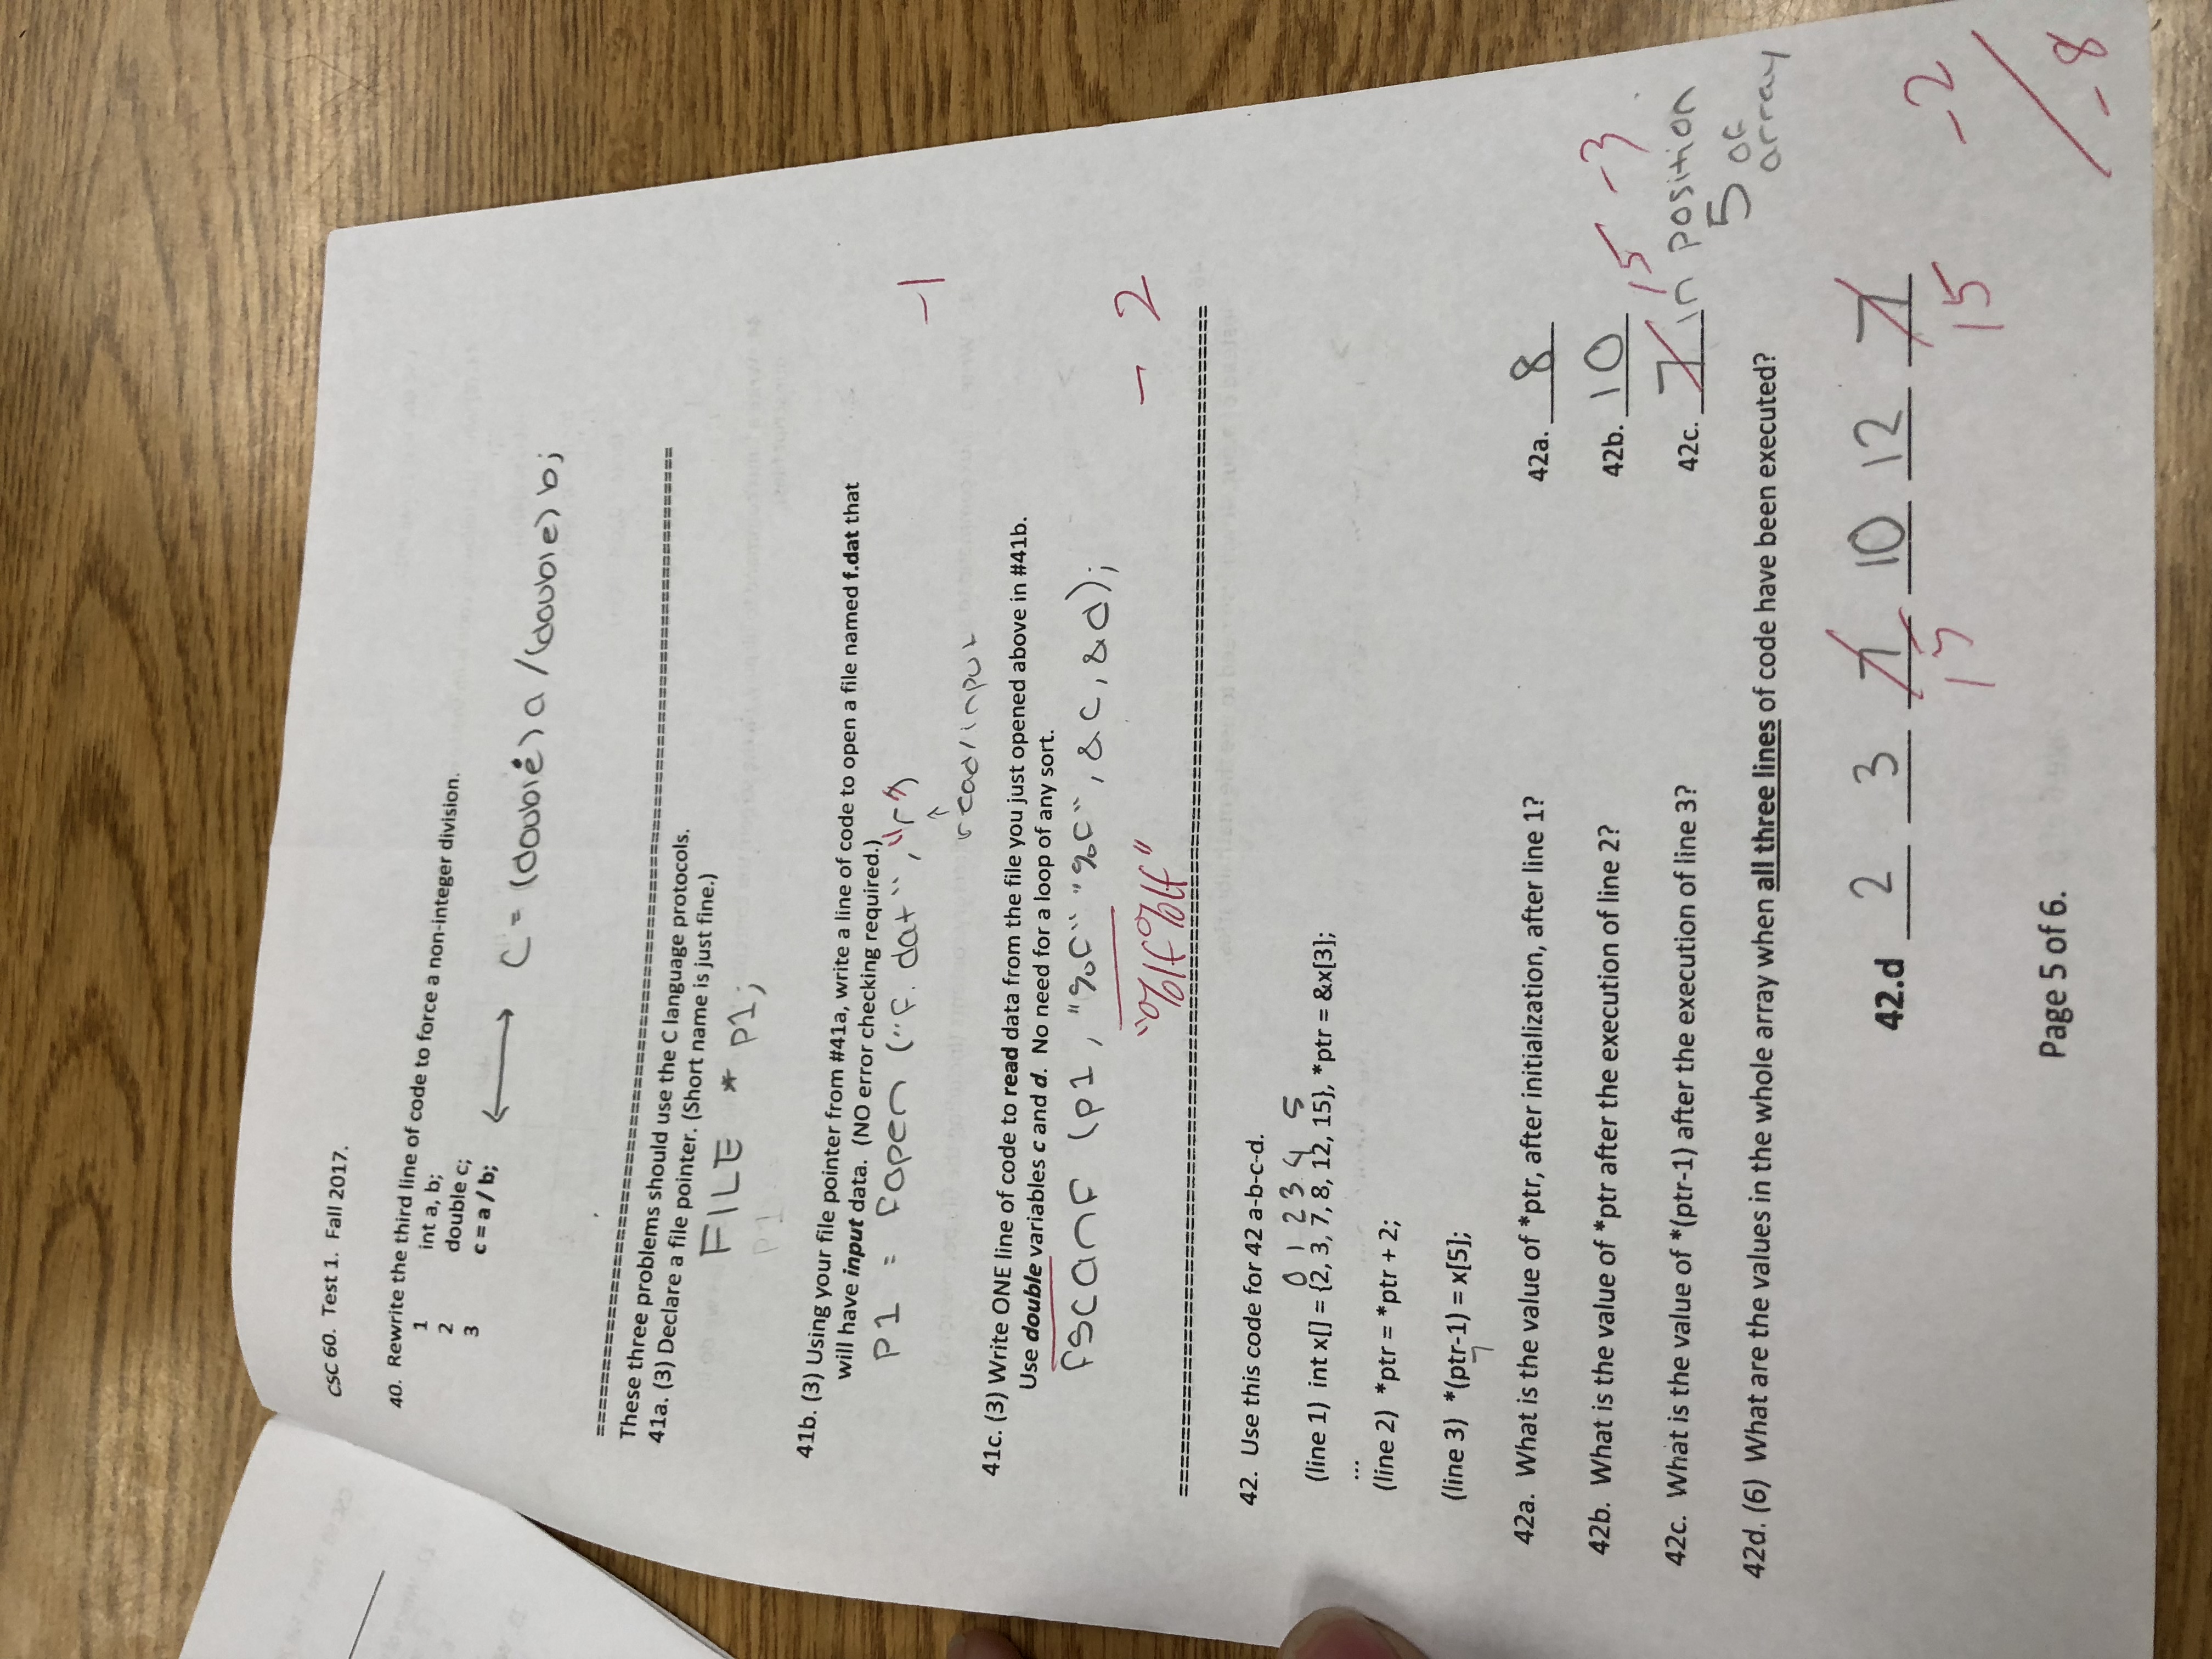 CSC 60. Test 1. Fall 2017.
40. Rewrite the third line of code to force a non-integer division.
1 int a, b;
2 double c;
3 c = a / b;
C = (double) a / (double) b;
================================================================================
These three problems should use the C language protocols.
41a. (3) Declare a file pointer. (Short name is just fine.)
FILE * p1;
P1
41b. (3) Using your file pointer from #41a, write a line of code to open a file named f.dat that
will have input data. (NO error checking required.)
P1 = fopen ("f.dat", "r")
-1
↑
read/input
41c. (3) Write ONE line of code to read data from the file you just opened above in #41b.
Use double variables c and d. No need for a loop of any sort.
fscanf (p1, "%f" "%f", &c, &d);
"%lf%lf"
- 2
================================================================================
42. Use this code for 42 a-b-c-d.
0 1 2 3 4 5
(line 1) int x[] = {2, 3, 7, 8, 12, 15}, *ptr = &x[3];
...
(line 2) *ptr = *ptr + 2;
(line 3) *(ptr-1) = x[5];
7
42a. What is the value of *ptr, after initialization, after line 1? 42a. 8
42b. What is the value of *ptr after the execution of line 2? 42b. 10
15 -3
42c. What is the value of *(ptr-1) after the execution of line 3? 42c. 7 in position
5 of
array
42d. (6) What are the values in the whole array when all three lines of code have been executed?
42.d 2 3 7 10 12 7
15 15
-2
-8
Page 5 of 6.